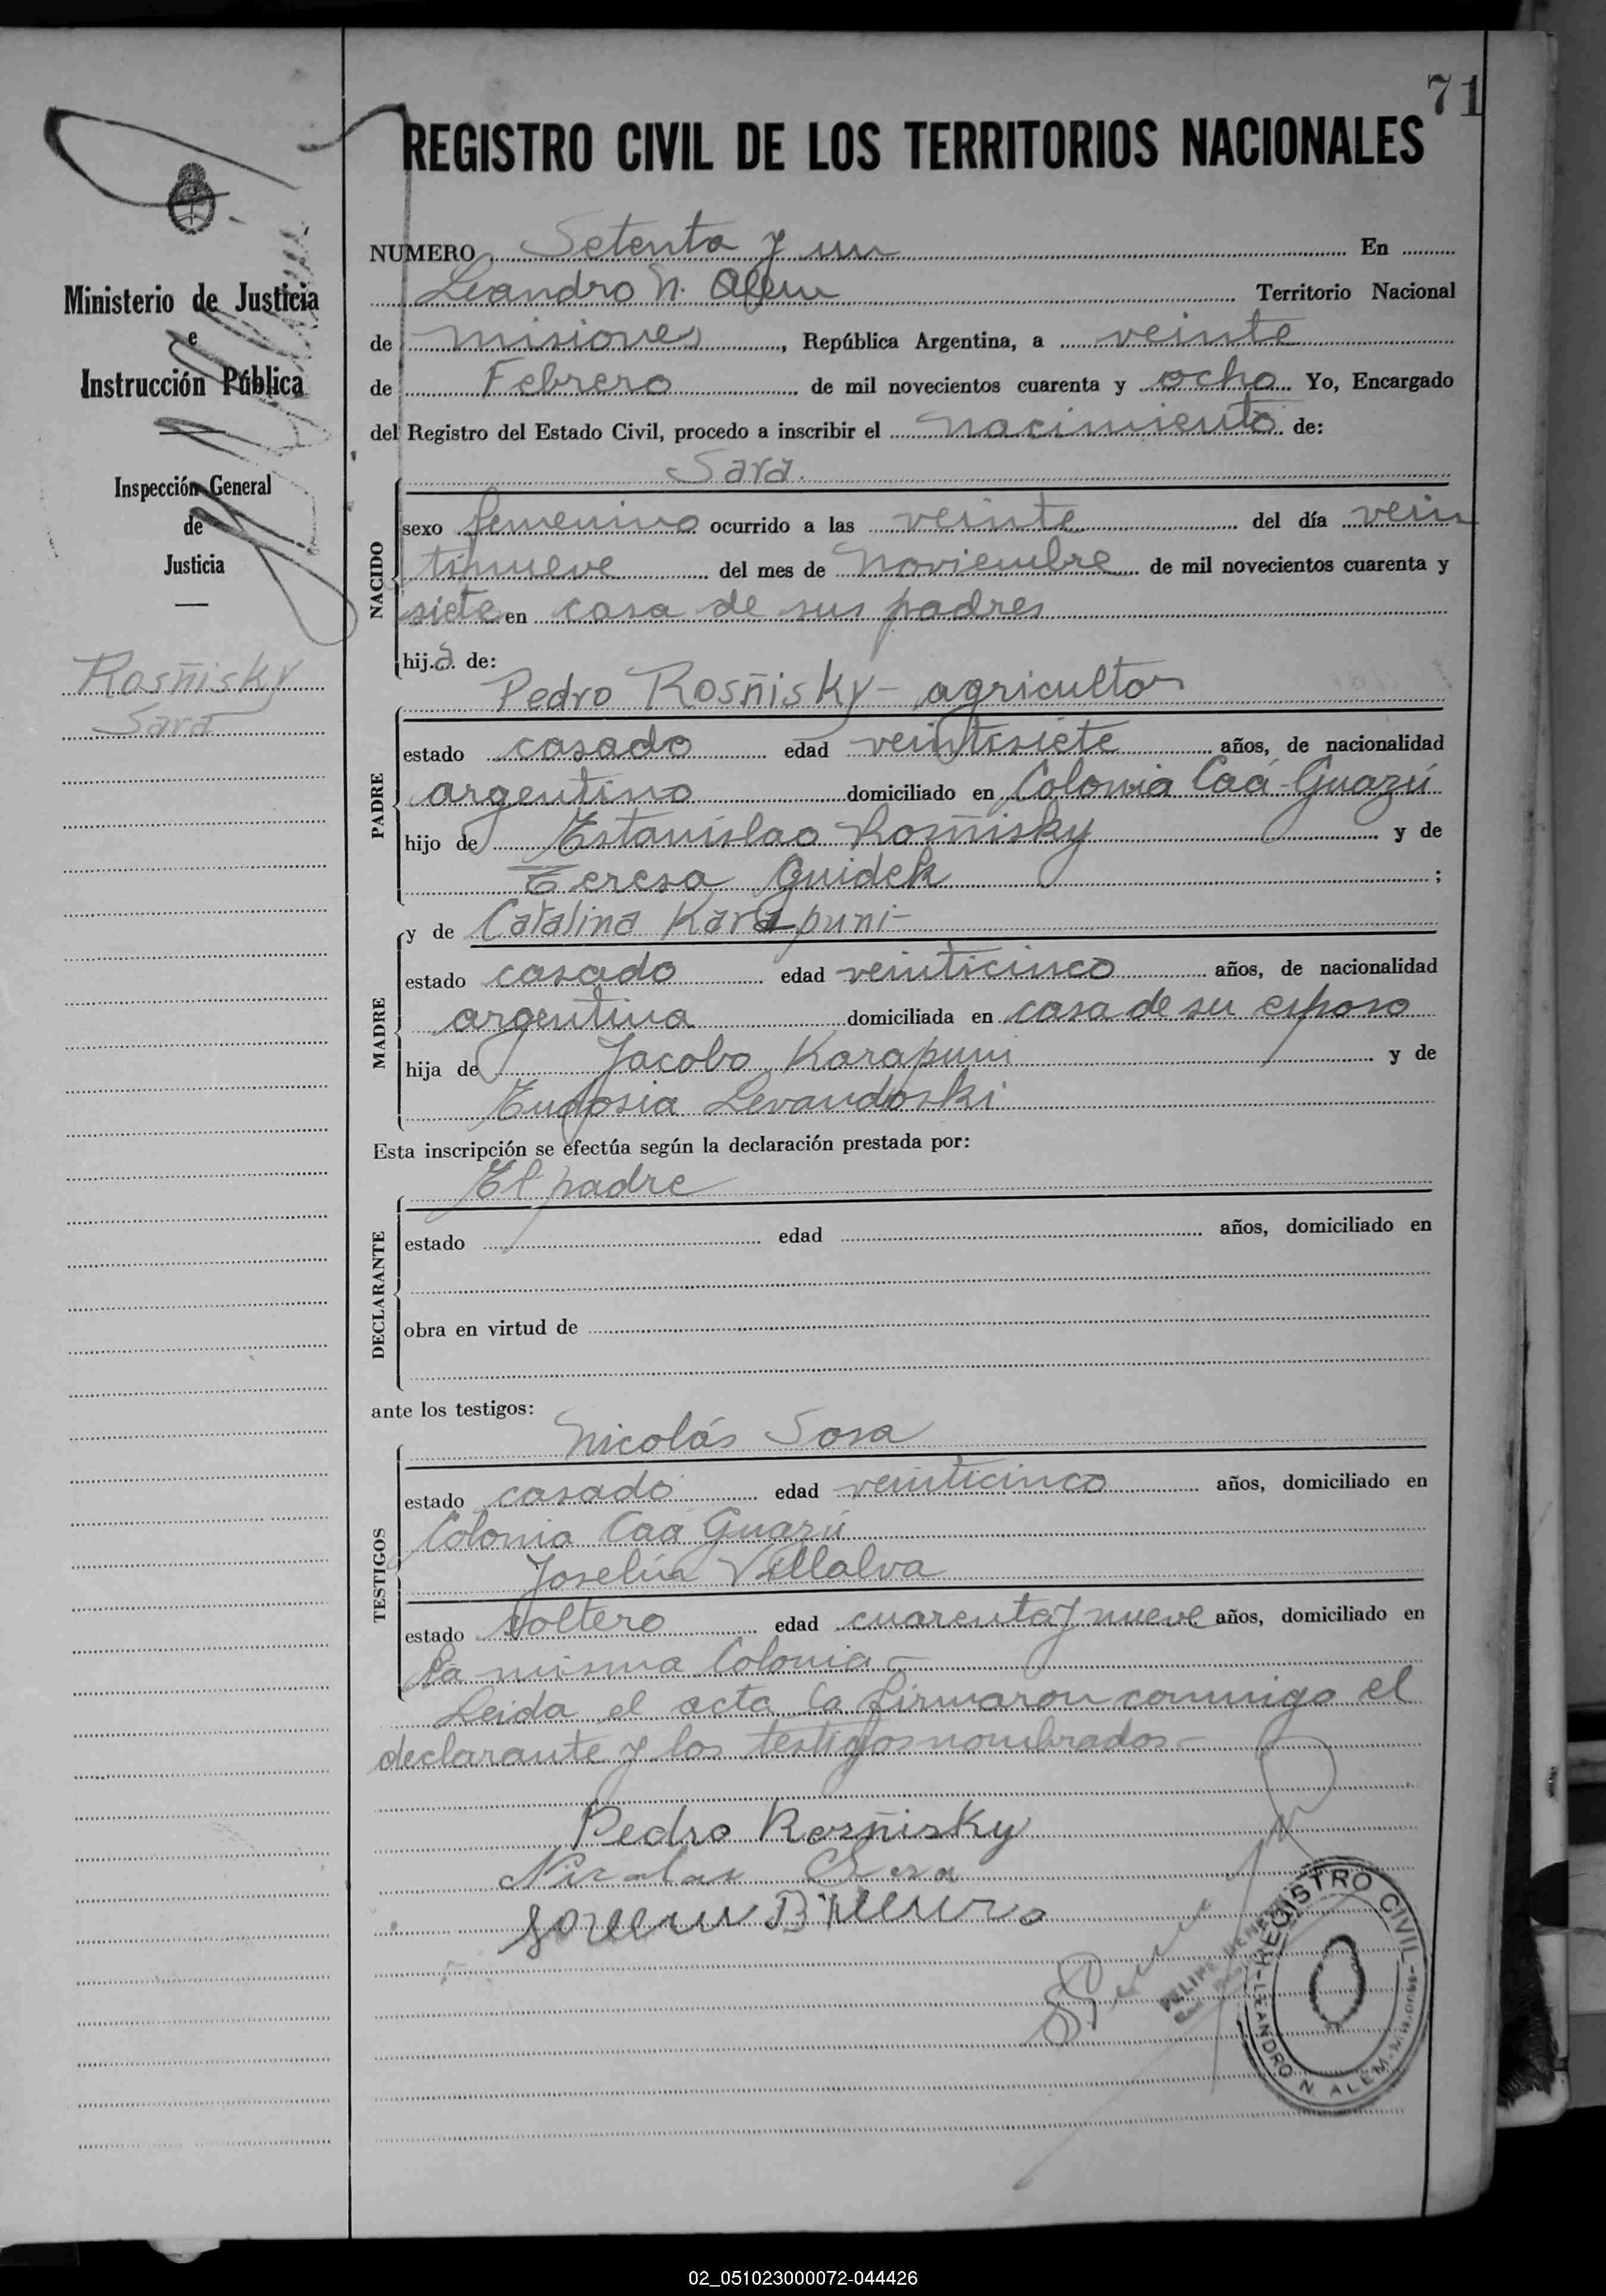 71
REGISTRO CIVIL DE LOS TERRITORIOS NACIONALES
Ministerio de Justicia
e
Instrucción Pública
Inspección General
de
Justicia
Rosñisky
Sara
NUMERO Setenta y un En
Leandro N. Alem Territorio Nacional
de misiones, República Argentina, a veinte
de Febrero de mil novecientos cuarenta y ocho Yo, Encargado
del Registro del Estado Civil, procedo a inscribir el nacimiento de:
Sara.
NACIDO
sexo femenino ocurrido a las veinte del día vein
tinueve del mes de Noviembre de mil novecientos cuarenta y
siete en casa de sus padres
hija de:
Pedro Rosñisky - agricultor
PADRE
estado casado edad veintisiete años, de nacionalidad
argentino domiciliado en Colonia Caá-Guazú
hijo de Estanislao Rosñisky y de
Teresa Guidek ;
y de Catalina Karapuni-
MADRE
estado casado edad veinticinco años, de nacionalidad
argentina domiciliada en casa de su esposo
hija de Jacobo Karapuni y de
Eudosia Levandoski
Esta inscripción se efectúa según la declaración prestada por:
El padre
DECLARANTE
estado edad años, domiciliado en
obra en virtud de
ante los testigos:
Nicolás Sosa
TESTIGOS
estado casado edad veinticinco años, domiciliado en
Colonia Caá Guazú
Joselin Villalva
estado soltero edad cuarenta y nueve años, domiciliado en
la misma Colonia -
Leida el acta la firmaron conmigo el
declarante y los testigos nombrados -
Pedro Rosñisky
Nicolas Sosa
REGISTRO CIVIL
LEANDRO N. ALEM
02_051023000072-044426